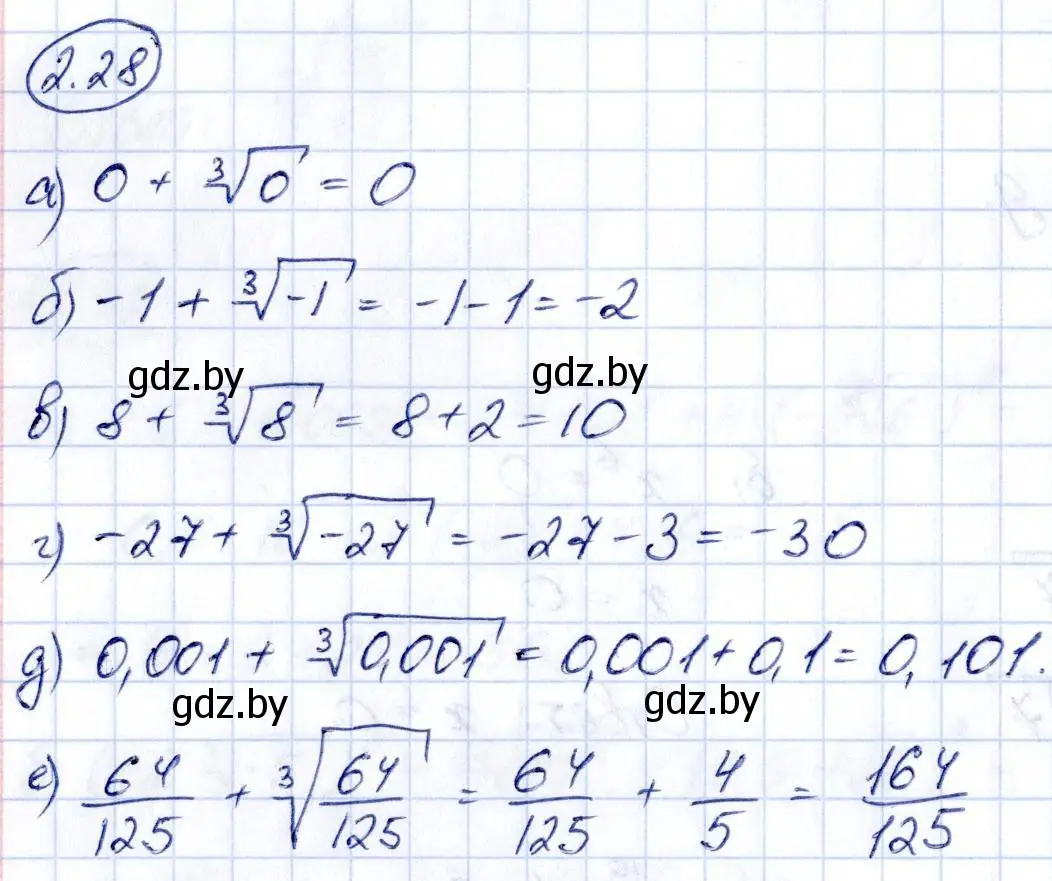 2.28
а) 0 + ∛0 = 0
б) -1 + ∛-1 = -1-1 = -2
gdz.by gdz.by
в) 8 + ∛8 = 8+2 = 10
г) -27 + ∛-27 = -27-3 = -30
д) 0,001 + ∛0,001 = 0,001+0,1 = 0,101.
gdz.by gdz.by
е) 64/125 + ∛(64/125) = 64/125 + 4/5 = 164/125